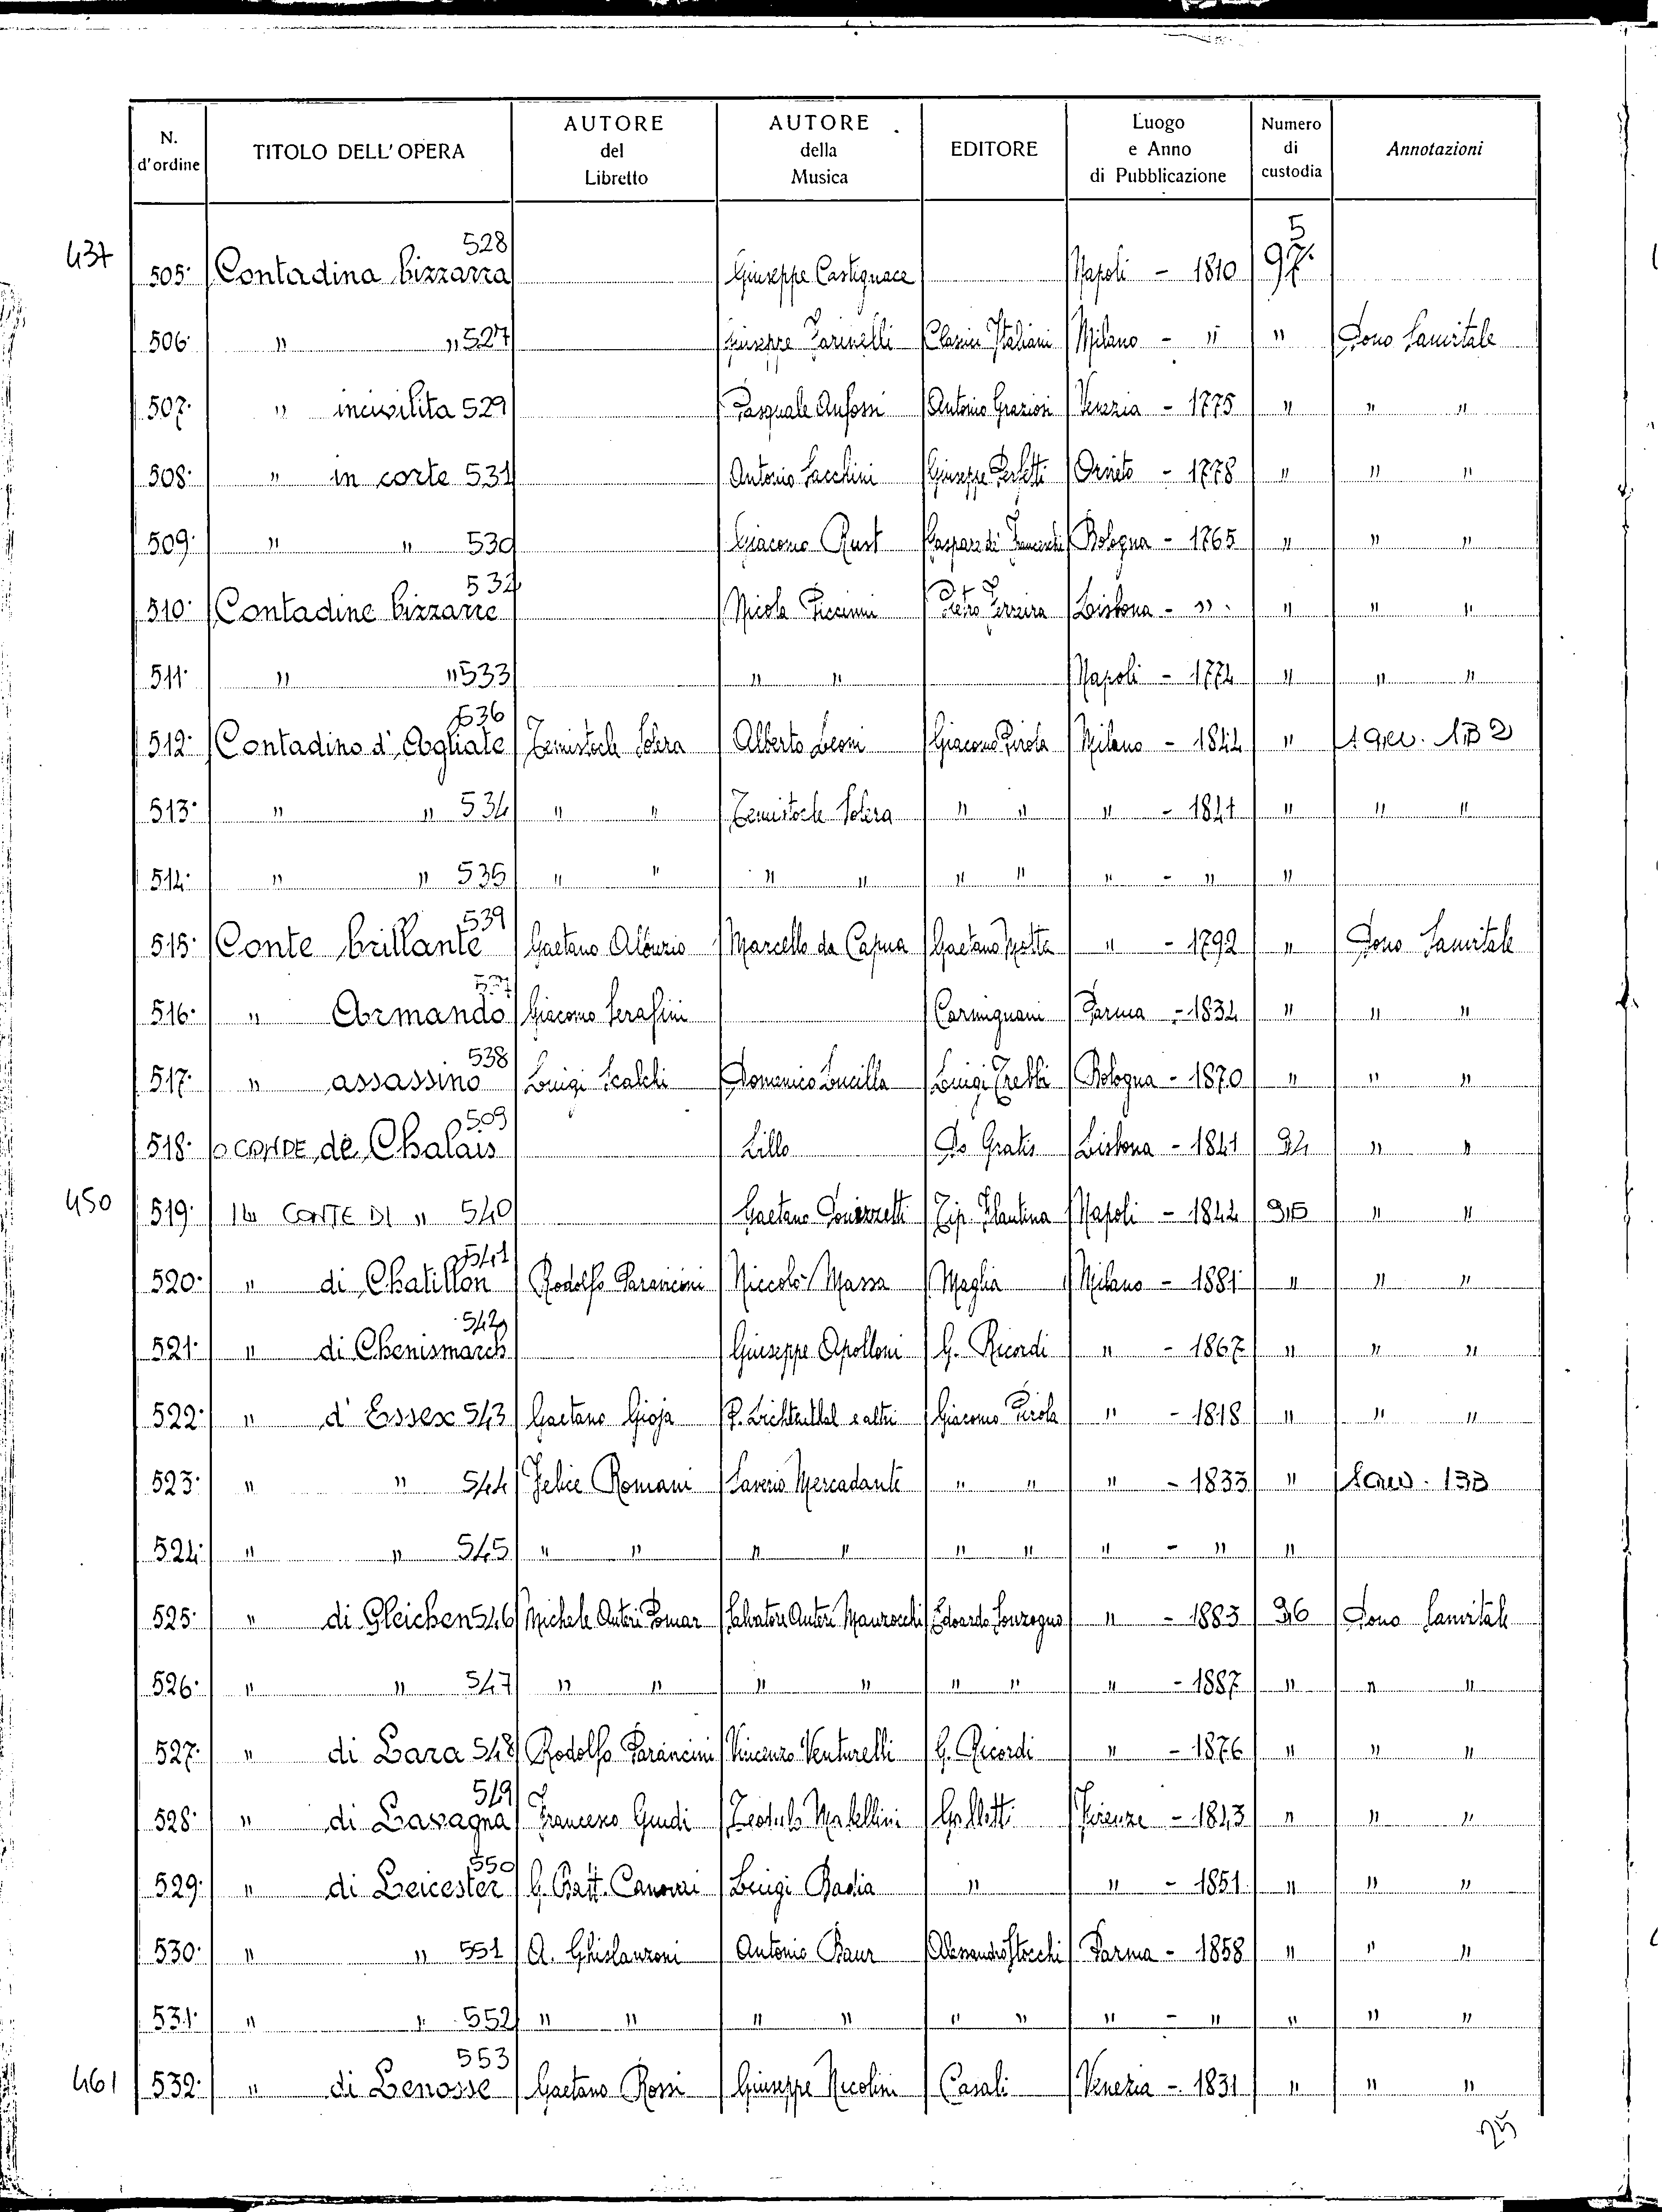 N. d'ordine | TITOLO DELL'OPERA | AUTORE del Libretto | AUTORE della Musica | EDITORE | Luogo e Anno di Pubblicazione | Numero di custodia | Annotazioni
437
505. Contadina bizzarra 528 Giuseppe Castignace Napoli - 1810 97. 5
506. " " 527 Giuseppe Farinelli Classici Italiani Milano - " " Dono Sanvitale
507. " incivilita 529 Pasquale Anfossi Antonio Graziosi Venezia - 1775 " " "
508. " in corte 531 Antonio Sacchini Giuseppe Orvieto - 1778 " " "
509. " " 530 Giacomo Rust Bologna - 1765 " " "
510. Contadine bizzarre 532 Nicola Piccinni Lisbona - " " " "
511. " " 533 " " Napoli - 1774 " " "
512. Contadino d'Agliate 536 Temistocle Solera Alberto Leoni Giacomo Pirola Milano - 1842 "
513. " " 534 " " Temistocle Solera " " " - 1841 " " "
514. " " 535 " " " " " " " - " "
515. Conte brillante 539 Gaetano Marcello da Capua Gaetano Motta " - 1792 " Dono Sanvitale
516. " Armando 537 Giacomo Serafini Carmignani Parma - 1834 " " "
517. " assassino 538 Luigi Scalchi Domenico Lucilla Luigi Trebbi Bologna - 1870 " " "
518. O CONDE de Chalais 509 Lillo Do Gratis Lisbona - 1841 94 " "
450
519. IL CONTE DI " 540 Gaetano Donizzetti Tip. Plautina Napoli - 1842 95 " "
520. " di Chatillon 541 Rodolfo Paravicini Niccolò Massa Maglia Milano - 1881 " " "
521. " di Chenismarch 542 Giuseppe Apolloni G. Ricordi " - 1867 " " "
522. " d'Essex 543 Gaetano Gioja P. Lichtenthal e altri Giacomo Pirola " - 1818 " " "
523. " " 544 Felice Romani Saverio Mercadante " " " - 1833 "
524. " " 545 " " " " " " " - " "
525. " di Gleichen 546 Michele Auteri Pomar Salvatore Auteri Manzocchi Edoardo Sonzogno " - 1883 96 Dono Sanvitale
526. " " 547 " " " " " " " - 1887 " " "
527. " di Lara 548 Rodolfo Paravicini Vincenzo Venturelli G. Ricordi " - 1876 " " "
528. " di Lavagna 549 Francesco Guidi Teodulo Mabellini Galletti Firenze - 1843 " " "
529. " di Leicester 550 G. Batt. Canovai Luigi Badia " " - 1851 " " "
530. " " 551 A. Ghislanzoni Antonio Baur Alessandro Stocchi Parma - 1858 " " "
531. " " 552 " " " " " " " - " " " "
461
532. " di Lenosse 553 Gaetano Rossi Giuseppe Nicolini Casali Venezia - 1831 " " "